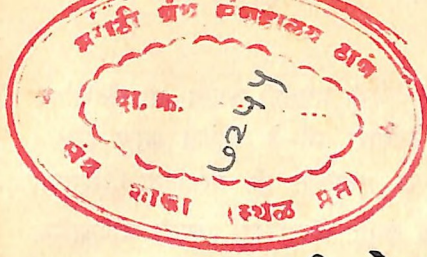 मराठी ग्रंथ संग्रहालय ठाणे
दा. क्र. ७२५५
संद्र शाखा (स्थळ प्रत)